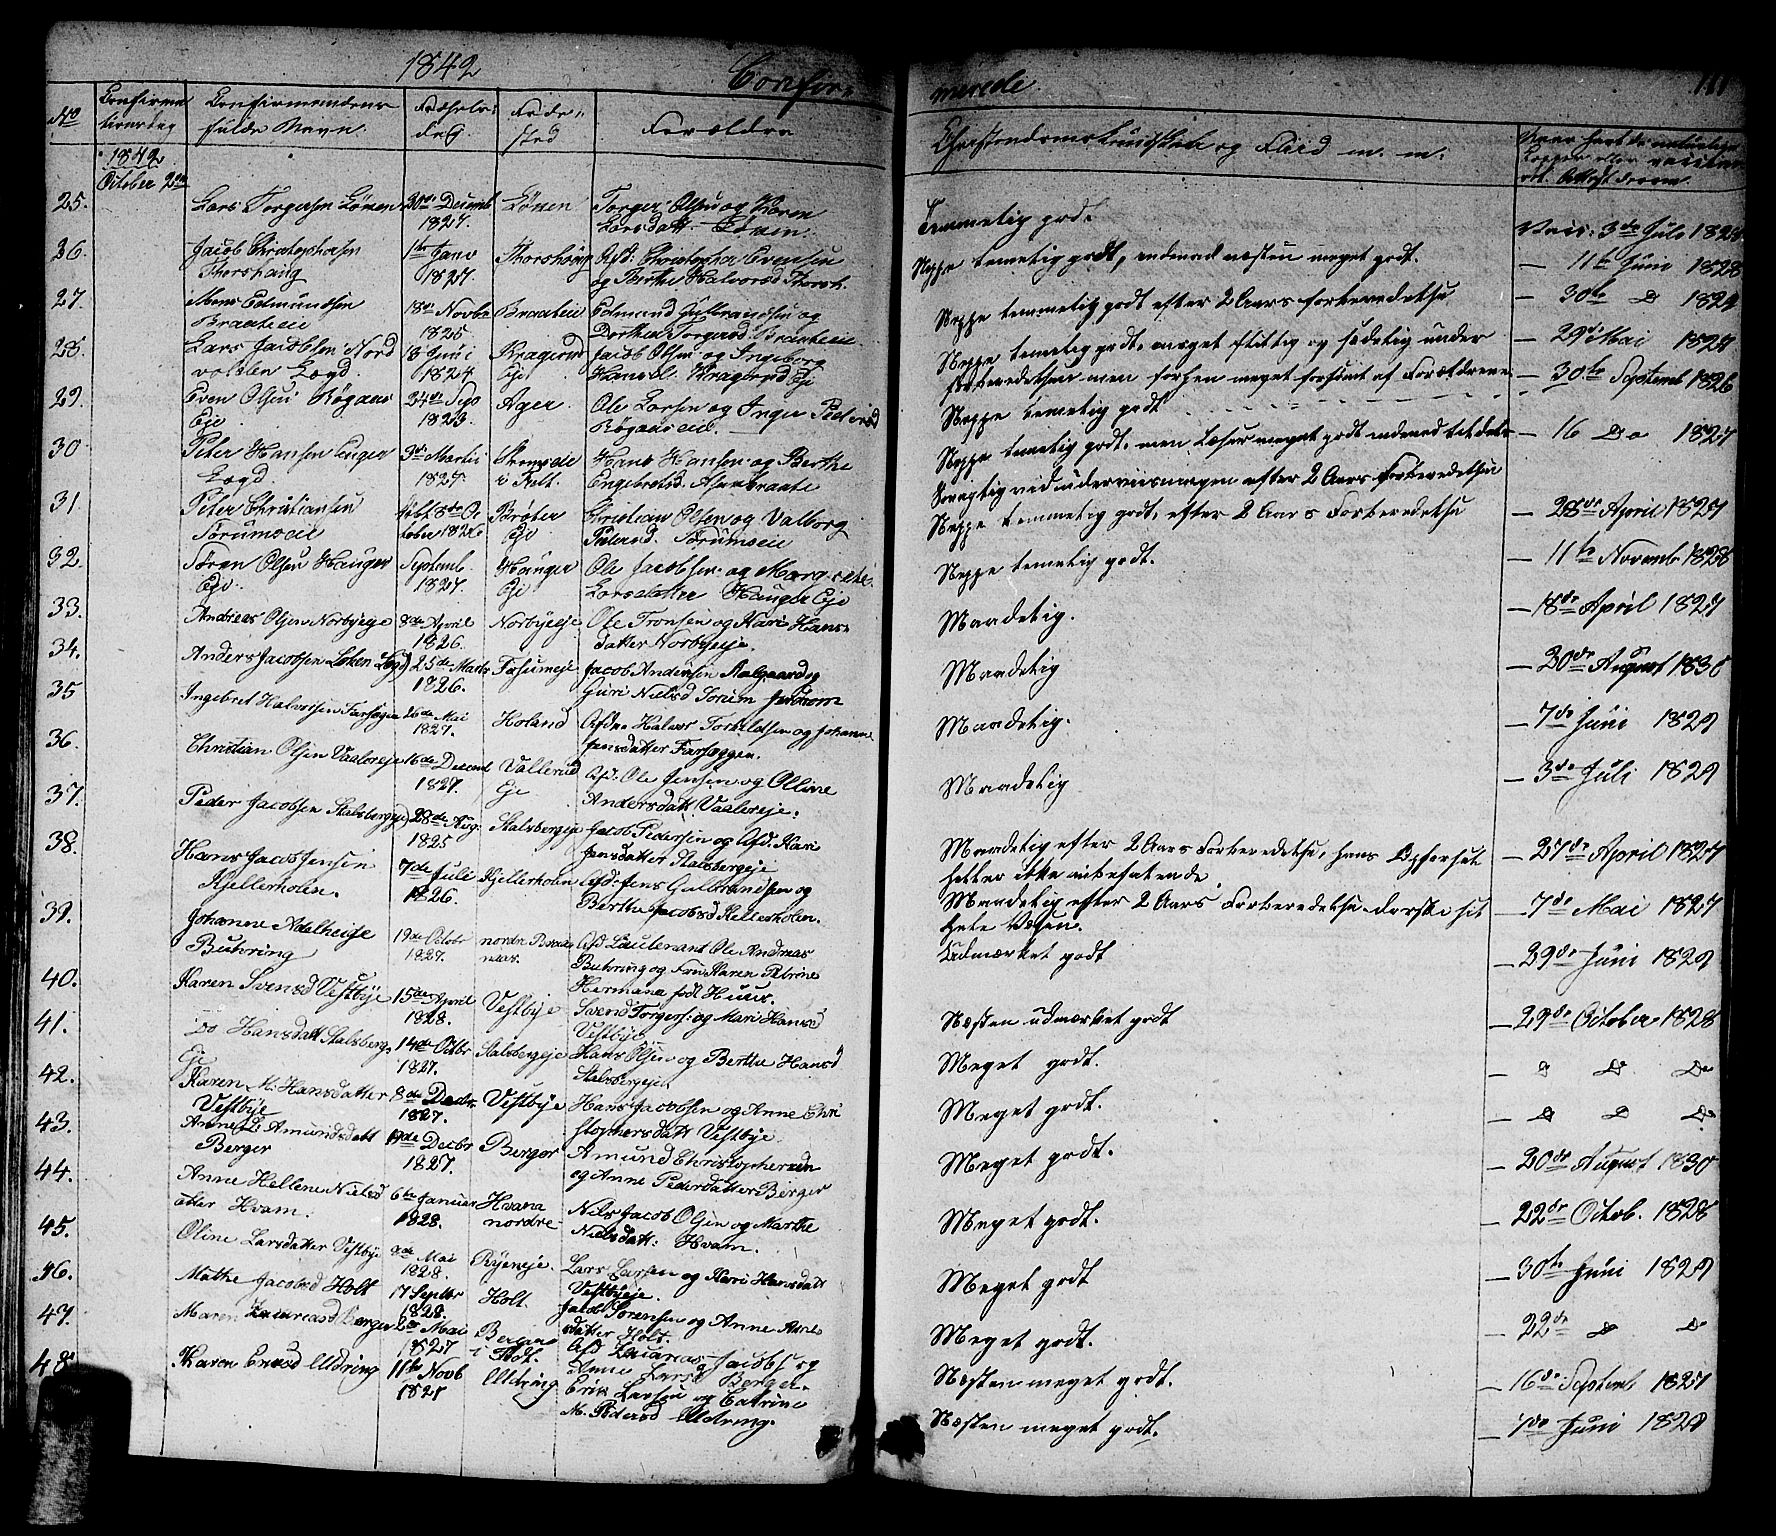 1842
Confir-
merede
111
No
Confirma
tionsdag
Confirmandens
fulde Navn.
Fødsels-
dag.
Føde-
sted
Forældre
Christendomskundskab og Flid m. m.
1842
October 2den
25.
Lars Torgersen Lönen
20de Decemb
1827.
Lönen
Torger Olsen og Karen
Larsdatt. Lönen.
Temmelig godt.
Vac: 3de Juli 1828
26.
Jacob Christophersen
Thorshaug
1ste Janv
1827.
Thorshoug
Afd. Christopher Evensen
og Berthe Halvorsd Thorsh.
Neppe temmelig godt, endnad næsten meget godt.
— 11te Juni 1828
27.
Mons Edmundsen
Braateeie
18de Novbr
1825
Braateeie
Edmund Gulbrandsen og
Dorthea Torgersd Braateeie
Neppe temmelig godt efter 2 Aars Forberedelse
— 30te D 1824
28.
Lars Jacobsen Nord
volden Logd.
18 Juni
1824
Kragerud
Eje
Jacob Olsen og Ingeborg
Hansd. Kragerud Eje
Neppe temelig godt, meget flittig og sædelig under
Forberedelsen men forhen meget forsømt af Forældrene
— 29de Mai 1827
29.
Even Olsen Högaas
Eje
24de Sep
1823.
Ager.
Ole Larsen og Inger Pedersd
Högaaseie.
Neppe temelig godt
— 30te Septemb 1826
30.
Peter Hansen Enger
Logd.
3de Martii
1827.
i Felt.
Hans Hansen og Berthe
Engebretsd. Askembraate
Neppe temelig godt, men Læser meget godt
ved underviisningen efter 2 Aars Forberedelse
— 16 Do 1827
31
Peter Christiansen
Forumseie
døbt 8de Oc
tober 1826
Bröter
Eje
Christian Olsen og Valborg
Pedersd. Forumseie
Neppe temmelig godt, efter 2 Aars Forberedelse
— 28de April 1827
32.
Sören Olsen Hauger
Eje.
Septemb
1827.
Hauger
Eje
Ole Jacobsen og Margrethe
Larsdatter Hauger Eje
Neppe temelig godt.
— 11te Novemb 1828
33.
Andreas Olsen Norbyeje
8de April
1826.
Norbyeje
Ole Tronsen og Kari Hans-
datter Norbyeje.
Maadelig.
— 18de April 1827
34.
Anders Jacobsen Løken (Logd)
25de Marts
1826.
Fosumeje
Jacob Andersen Aalgaard og
Guri Nielsd Sorum
Maadelig
— 20de August 1830
35
Ingebret Halvorsen Farseggen
26de Mai
1827.
Holand
Afdn Halvor Torkildsen og Johanne
Jensdatter Farseggen.
Maadelig.
— 7de Juni 1829
36.
Christian Olsen Vaalereje
16de Decemb
1827.
Vallerud
Eje
Afd. Ole Jensen og Olline
Andersdatt Vaalereje.
Maadelig
— 3de Juli 1829
37.
Peder Jacobsen Stalsbergeje
28de Aug.
1825
Stalsbergeje
Jacob Pedersen og Afd. Kari
Jensdatter Stalsbergeje
Maadelig efter 2 Aars Forberedelse, hans Opførsel
heller ikke anbefalende.
— 27de April 1827
38.
Hans Jacob Jensen
Kjellerholen.
7de Juli
1826.
Kjellerholen
Afd. Jens Gulbrandsen og
Berthe Jacobsd Kellerholen.
Maadelig efter 2 Aars Forberedelse, dorsk i sit
hele Væsen.
— 7de Mai 1827
39.
Johanne Adelheige
Butoring
19de Octobr
1827.
nordre Braa
naas.
Afd Lieutenant Ole Andreas
Butoring og Fru Karen Petrine
Hermana født Huus.
Udmærket godt
— 29de Juni 1829
40.
Karen Svensd Vestbye
15de April
1828.
Vestbye
Svend Torgers. og Mari Hansd
Vestbye.
Næsten udmærket godt
— 29de October 1828
41.
Do Hansdatt Stalsbergs
Eje
14de Octbr
1827.
Stalsbergeje
Hans Olsen og Berthe Hansd
Stalsbergeje.
Meget godt.
— D Do Do
42.
Karen M. Hansdatter
Vestbye
8de Decbr.
1827.
Vestbye
Hans Jacobsen og Anne Chri
stophersdatt Vestbye.
Meget godt.
— D D D
43.
Anne L. Amundsdatt
Berger
19de Decbr
1827.
Berger
Amund Christophersen
og Anne Pedersdatter Berger
Meget godt.
— 20de August 1830
44.
Anne Hellene Nielsd
atter Hvam.
6te Januar
1828.
Hvam
nordre
Nils Jacob Olsen og Marthe
Nielsdatt: Hvam.
Meget godt.
— 22de Octob. 1828
45.
Oline Larsdatter Vestbye
Mai
1828.
Ryeneje.
Lars Larsen og Kari Hansdatt
Vestbyeje.
Meget godt
— 30te Juni 1829
46.
Mathe Jacobsd Holt
17 Septbr
1828.
Holt.
Jacob Sørensen og Anne
datter Holt.
Meget godt.
— 22de D D
47.
Maren Zacariasd Berger
2de Mai
1827
Berger
i Holt.
Afd Zacarias Jacobs. og
Anne Larsd Berger.
Næsten meget godt.
— 16de Septemb 1827
48.
Karen Eriksd Uldring
11te Novb
1827
Uldring
Erik Larsen og Catrine
M. Pedersd Uldring.
Næsten meget godt.
— 7de Juni 1829